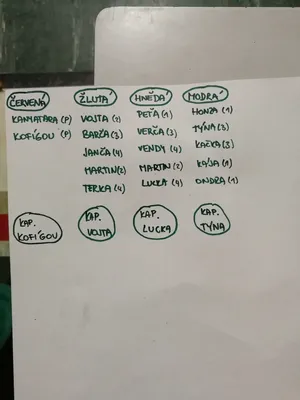 ČERVENÁ
KANYATARA (P)
KOFIGOU (P)
ŽLUTÁ
VOJTA (2)
BARČA (3)
JANČA (4)
MARTIN (2)
TERKA (4)
HNĚDÁ
PEŤA (1)
VERČA (3)
VENDY (4)
MARTIN (2)
LUCKA (4)
MODRÁ
HONZA (1)
TÝNA (3)
KAČKA (3)
KÁJA (1)
ONDRA (1)
KAP.
KOFIGOU
KAP.
VOJTA
KAP.
LUCKA
KAP.
TÝNA